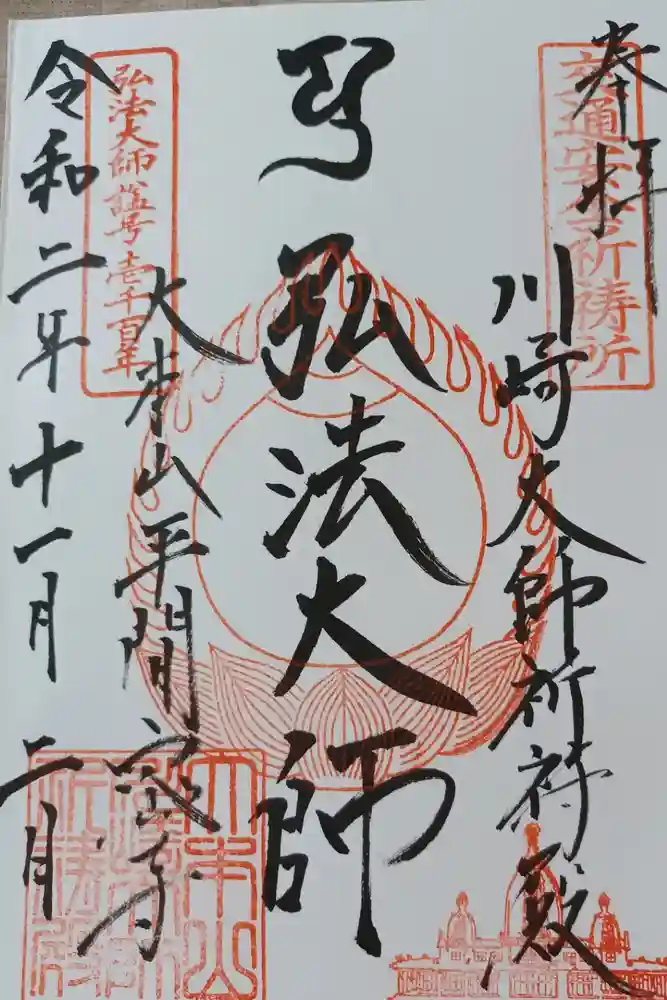 奉拝
交通安全祈祷所
川崎大師祈祷殿
弘法大師
弘法大師諡号壱千百年
大本山平間寺
令和二年十一月二日